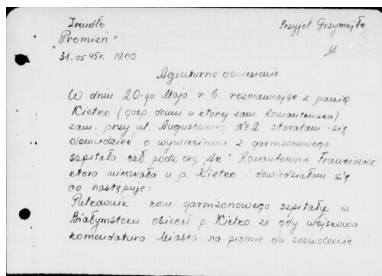 Źródło Przyjął Grzymajło
"Promień"
31.05.45r. 19.00
Agenturne doniesienie
W dniu 20-go Maja r. b. rozmawiając z panią
Kietko (gosp. domu u której zam. Romantowska)
zam. przy ul. Augustowskiej No 2 starałam się
dowiedzieć o wywiezieniu z garnizonowego
szpitala czł. podz. org. "Ak" Romantowną Franciszkę
która mieszkała u p. Kietko i dowiedziałam się
co następuje:
Pułkownik kom. garnizonowego szpitala w
Białymstoku obiecał p. Kietko że gdy wojskowa
komendatura miasta na piśmie da zezwolenie